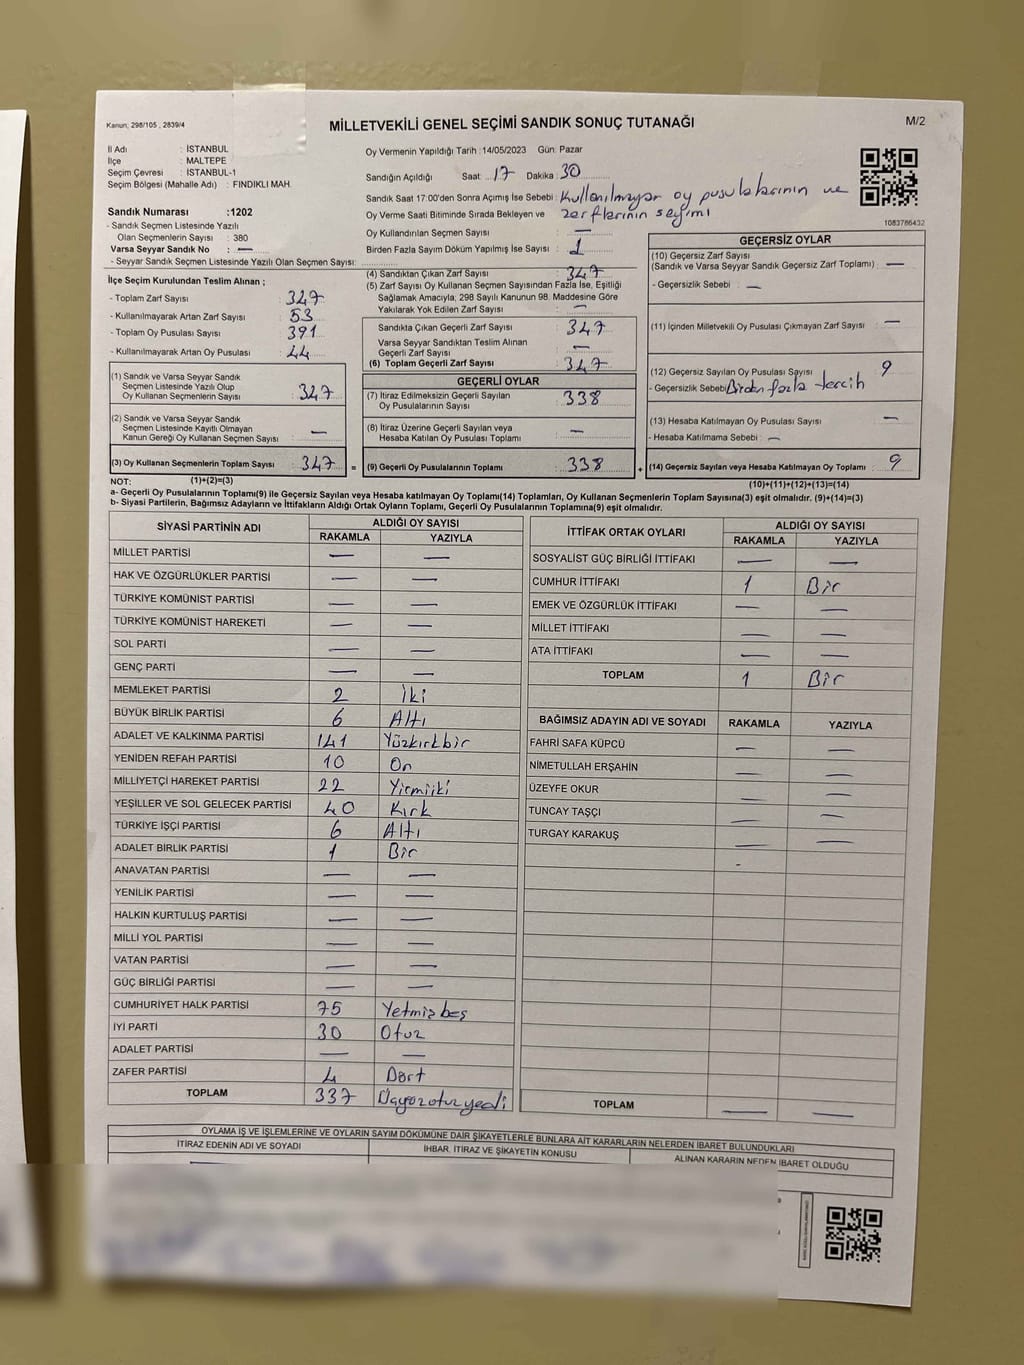 Kanun; 298/105 , 2839/4
MİLLETVEKİLİ GENEL SEÇİMİ SANDIK SONUÇ TUTANAĞI
M/2
İl Adı : İSTANBUL
İlçe : MALTEPE
Seçim Çevresi : İSTANBUL-1
Seçim Bölgesi (Mahalle Adı) : FINDIKLI MAH.
Sandık Numarası :1202
- Sandık Seçmen Listesinde Yazılı
Olan Seçmenlerin Sayısı : 380
Varsa Seyyar Sandık No : —
- Seyyar Sandık Seçmen Listesinde Yazılı Olan Seçmen Sayısı:
Oy Vermenin Yapıldığı Tarih :14/05/2023 Gün: Pazar
Sandığın Açıldığı Saat: 17 Dakika : 30
Sandık Saat 17:00'den Sonra Açımış İse Sebebi : Kullanılmayan oy pusulalarının ve
Oy Verme Saati Bitiminde Sırada Bekleyen ve zarflarının sayımı
Oy Kullandırılan Seçmen Sayısı : —
Birden Fazla Sayım Döküm Yapılmış İse Sayısı : 1
1083766432
İlçe Seçim Kurulundan Teslim Alınan ;
- Toplam Zarf Sayısı : 347
- Kullanılmayarak Artan Zarf Sayısı : 53
- Toplam Oy Pusulası Sayısı : 391
- Kullanılmayarak Artan Oy Pusulası : 44
(1) Sandık ve Varsa Seyyar Sandık
Seçmen Listesinde Yazılı Olup
Oy Kullanan Seçmenlerin Sayısı : 347
(2) Sandık ve Varsa Seyyar Sandık
Seçmen Listesinde Kayıtlı Olmayan
Kanun Gereği Oy Kullanan Seçmen Sayısı : —
(3) Oy Kullanan Seçmenlerin Toplam Sayısı : 347
(1)+(2)=(3)
(4) Sandıktan Çıkan Zarf Sayısı : 347
(5) Zarf Sayısı Oy Kullanan Seçmen Sayısından Fazla İse, Eşitliği
Sağlamak Amacıyla, 298 Sayılı Kanunun 98. Maddesine Göre
Yakılarak Yok Edilen Zarf Sayısı : —
Sandıkta Çıkan Geçerli Zarf Sayısı : 347
Varsa Seyyar Sandıktan Teslim Alınan
Geçerli Zarf Sayısı : —
(6) Toplam Geçerli Zarf Sayısı : 347
GEÇERLİ OYLAR
(7) İtiraz Edilmeksizin Geçerli Sayılan
Oy Pusulalarının Sayısı : 338
(8) İtiraz Üzerine Geçerli Sayılan veya
Hesaba Katılan Oy Pusulası Toplamı : —
= (9) Geçerli Oy Pusulalarının Toplamı : 338
GEÇERSİZ OYLAR
(10) Geçersiz Zarf Sayısı
(Sandık ve Varsa Seyyar Sandık Geçersiz Zarf Toplamı) : —
- Geçersizlik Sebebi : —
(11) İçinden Milletvekili Oy Pusulası Çıkmayan Zarf Sayısı : —
(12) Geçersiz Sayılan Oy Pusulası Sayısı : 9
- Geçersizlik Sebebi Birden fazla tercih
(13) Hesaba Katılmayan Oy Pusulası Sayısı : —
- Hesaba Katılmama Sebebi : —
+ (14) Geçersiz Sayılan veya Hesaba Katılmayan Oy Toplamı : 9
(10)+(11)+(12)+(13)=(14)
NOT:
a- Geçerli Oy Pusulalarının Toplamı(9) ile Geçersiz Sayılan veya Hesaba katılmayan Oy Toplamı(14) Toplamları, Oy Kullanan Seçmenlerin Toplam Sayısına(3) eşit olmalıdır. (9)+(14)=(3)
b- Siyasi Partilerin, Bağımsız Adayların ve İttifakların Aldığı Ortak Oyların Toplamı, Geçerli Oy Pusulalarının Toplamına(9) eşit olmalıdır.
SİYASİ PARTİNİN ADI ALDIĞI OY SAYISI
RAKAMLA YAZIYLA
MİLLET PARTİSİ — —
HAK VE ÖZGÜRLÜKLER PARTİSİ — —
TÜRKİYE KOMÜNİST PARTİSİ — —
TÜRKİYE KOMÜNİST HAREKETİ — —
SOL PARTİ — —
GENÇ PARTİ — —
MEMLEKET PARTİSİ 2 İki
BÜYÜK BİRLİK PARTİSİ 6 Altı
ADALET VE KALKINMA PARTİSİ 141 Yüzkırkbir
YENİDEN REFAH PARTİSİ 10 On
MİLLİYETÇİ HAREKET PARTİSİ 22 Yirmiiki
YEŞİLLER VE SOL GELECEK PARTİSİ 40 Kırk
TÜRKİYE İŞÇİ PARTİSİ 6 Altı
ADALET BİRLİK PARTİSİ 1 Bir
ANAVATAN PARTİSİ — —
YENİLİK PARTİSİ — —
HALKIN KURTULUŞ PARTİSİ — —
MİLLİ YOL PARTİSİ — —
VATAN PARTİSİ — —
GÜÇ BİRLİĞİ PARTİSİ — —
CUMHURİYET HALK PARTİSİ 75 Yetmişbeş
İYİ PARTİ 30 Otuz
ADALET PARTİSİ — —
ZAFER PARTİSİ 4 Dört
TOPLAM 337 Üçyüzotuzyedi
İTTİFAK ORTAK OYLARI ALDIĞI OY SAYISI
RAKAMLA YAZIYLA
SOSYALİST GÜÇ BİRLİĞİ İTTİFAKI — —
CUMHUR İTTİFAKI 1 Bir
EMEK VE ÖZGÜRLÜK İTTİFAKI — —
MİLLET İTTİFAKI — —
ATA İTTİFAKI — —
TOPLAM 1 Bir
BAĞIMSIZ ADAYIN ADI VE SOYADI RAKAMLA YAZIYLA
FAHRİ SAFA KÜPCÜ — —
NİMETULLAH ERŞAHİN — —
ÜZEYFE OKUR — —
TUNCAY TAŞÇI — —
TURGAY KARAKUŞ — —
TOPLAM — —
OYLAMA İŞ VE İŞLEMLERİNE VE OYLARIN SAYIM DÖKÜMÜNE DAİR ŞİKAYETLERLE BUNLARA AİT KARARLARIN NELERDEN İBARET BULUNDUKLARI
İTİRAZ EDENİN ADI VE SOYADI İHBAR, İTİRAZ VE ŞİKAYETİN KONUSU ALINAN KARARIN NEDEN İBARET OLDUĞU